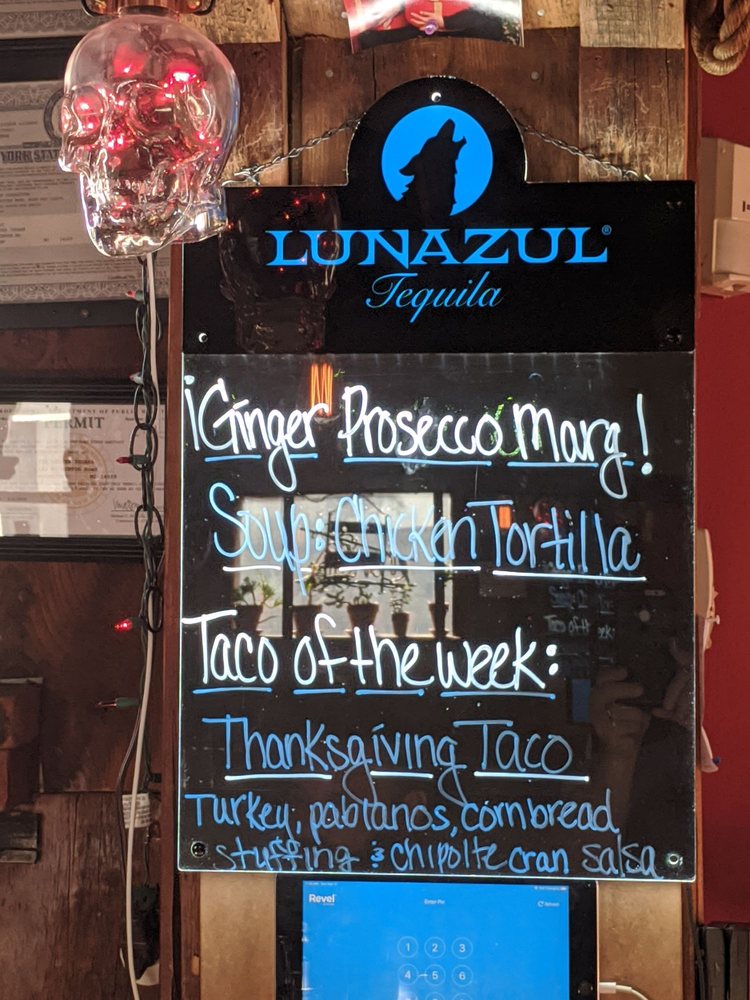 YORK STATE
LUNAZUL®
Tequila
PERMIT
¡Ginger Prosecco Marg!
Soup: Chicken Tortilla
Taco of the week:
Thanksgiving Taco
Turkey, pablanos, cornbread
stuffing & chipolte cran salsa
Revel
Enter Pin
Refresh
1 2 3
4 5 6